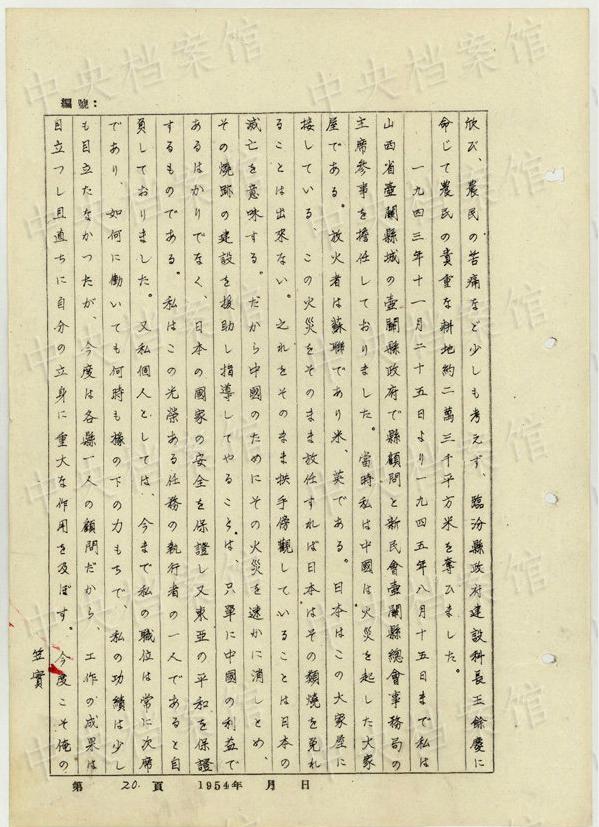 編號：
欣び、農民の苦痛など少しも考えず、臨汾縣政府建設科長王餘慶に
命じて農民の貴重な耕地約二萬三千平方米を奪ひました。
一九四三年十一月二十五日より一九四五年八月十五日まで私は
山西省壷關縣城の壷關縣政府で縣顧問と新民會壷關縣總會事務局の
主席参事を擔任しておりました。當時私は中國は火災を起した大家
屋である。放火者は蘇聯であり米、英である。日本はこの大家屋に
接している、この火災をそのまま放任すれば日本はその類焼を免れ
ることは出来ない。之れをそのまま拱手傍觀していることは日本の
滅亡を意味する。だから中國のためにその火災を速かに消しとめ、
その焼跡の建設を援助し指導してやることは、只單に中國の利益で
あるばかりでなく、日本の國家の安全を保證し又東亜の平和を保證
するものである。私はこの光榮ある任務の執行者の一人であると自
負しておりました。又私個人としては、今まで私の職位は常に次席
であり、如何に働いても何時も椽の下の力もちで、私の功績は少し
も目立たなかつたが、今度は各縣一人の顧問だから、工作の成果は
目立つし且直ちに自分の立身に重大な作用を及ぼす。今度こそ俺の
笠實
第 20. 頁 1954年 月 日
中央档案馆